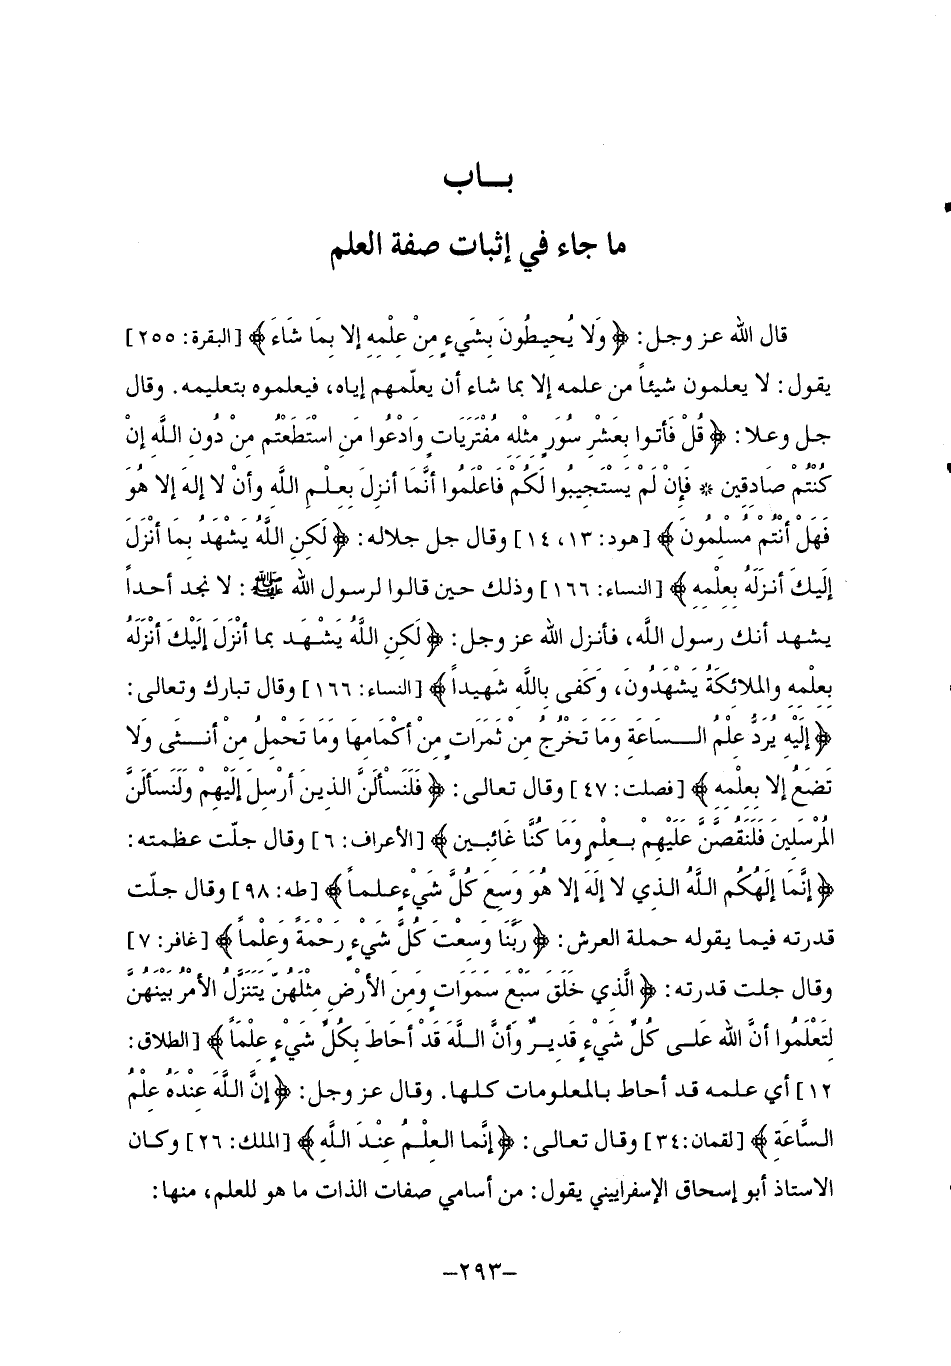 بـــاب
ما جاء في إثبات صفة العلم
قال الله عز وجل: ﴿ وَلا يُحيطُونَ بِشَيءٍ مِنْ عِلْمِهِ إلا بِمَا شَاءَ ﴾ [البقرة: ٢٥٥]
يقول: لا يعلمون شيئاً من علمه إلا بما شاء أن يعلّمهم إياه، فيعلموه بتعليمه. وقال
جل وعلا: ﴿ قُلْ فَأتوا بِعَشْرِ سُوَرٍ مِثْلِهِ مُفْتَرَيَاتٍ وَادْعُوا مَنِ اسْتَطَعْتُم مِنْ دُونِ اللَّهِ إن
كُنْتُمْ صَادِقين * فَإنْ لَمْ يَسْتَجِيبُوا لَكُمْ فَاعْلَمُوا أنَّمَا أنزِلَ بِعِلْمِ اللَّهِ وأنْ لا إلهَ إلا هُوَ
فَهَلْ أنْتُمْ مُسْلِمُونَ ﴾ [هود: ١٣، ١٤] وقال جل جلاله: ﴿ لَكِنِ اللَّهُ يَشْهَدُ بِمَا أنْزَلَ
إلَيكَ أنزَلَهُ بِعِلْمِهِ ﴾ [النساء: ١٦٦] وذلك حين قالوا لرسول الله ﷺ: لا نجد أحداً
يشهد أنك رسول اللَّه، فأنزل الله عز وجل: ﴿ لَكِنِ اللَّهُ يَشْهَد بِما أنْزَلَ إلَيْكَ أنْزَلَهُ
بِعِلْمِهِ والملائكَةُ يَشْهَدُونَ، وَكَفى بِاللَّهِ شَهيداً ﴾ [النساء: ١٦٦] وقال تبارك وتعالى:
﴿ إلَيْهِ يُرَدُّ عِلْمُ السـاعَةِ وَمَا تَخْرُجُ مِنْ ثَمَرَاتٍ مِنْ أكْمَامِهَا وَمَا تَحْمِلُ مِنْ أنـثى وَلا
تَضَعُ إلا بِعِلْمِهِ ﴾ [فصلت: ٤٧] وقال تعالى: ﴿ فَلَنَسْألَنَّ الذينَ أرْسِلَ إلَيْهِمْ وَلَنَسألَنَّ
المُرْسَلِينَ فَلَنَقُصَّنَّ عَلَيْهِمْ بِعِلْمٍ وَمَا كُنَّا غَائِبِين ﴾ [الأعراف: ٦] وقال جلّت عظمته:
﴿ إنَّمَا إلَهُكُم اللَّهُ الذي لا إلَهَ إلا هُوَ وَسِعَ كُلَّ شَيْءٍ عِلماً ﴾ [طه: ٩٨] وقال جلّت
قدرته فيما يقوله حملة العرش: ﴿ رَبَّنَا وَسِعْتَ كُلَّ شَيْءٍ رَحْمَةً وَعِلْماً ﴾ [غافر: ٧]
وقال جلت قدرته: ﴿ الَّذي خَلَقَ سَبْعَ سَمَوَاتٍ وَمِنَ الأرْضِ مِثْلَهُنَّ يَتَنَزَّلُ الأمْرُ بَيْنَهُنَّ
لِتَعْلَمُوا أنَّ الله عَلَى كُلِّ شَيْءٍ قَديرٌ وَأنَّ اللَّهَ قَدْ أحَاطَ بِكُلِّ شَيْءٍ عِلْمَاً ﴾ [الطلاق:
١٢] أي علمه قد أحاط بالمعلومات كلها. وقال عز وجل: ﴿ إنَّ اللَّهَ عِنْدَهُ عِلْمُ
السَّاعَةِ ﴾ [لقمان:٣٤] وقال تعالى: ﴿ إنَّما العِلْمُ عِنْدَ اللَّهِ ﴾ [الملك: ٢٦] وكان
الاستاذ أبو إسحاق الإسفراييني يقول: من أسامي صفات الذات ما هو للعلم، منها:
–٢٩٣–